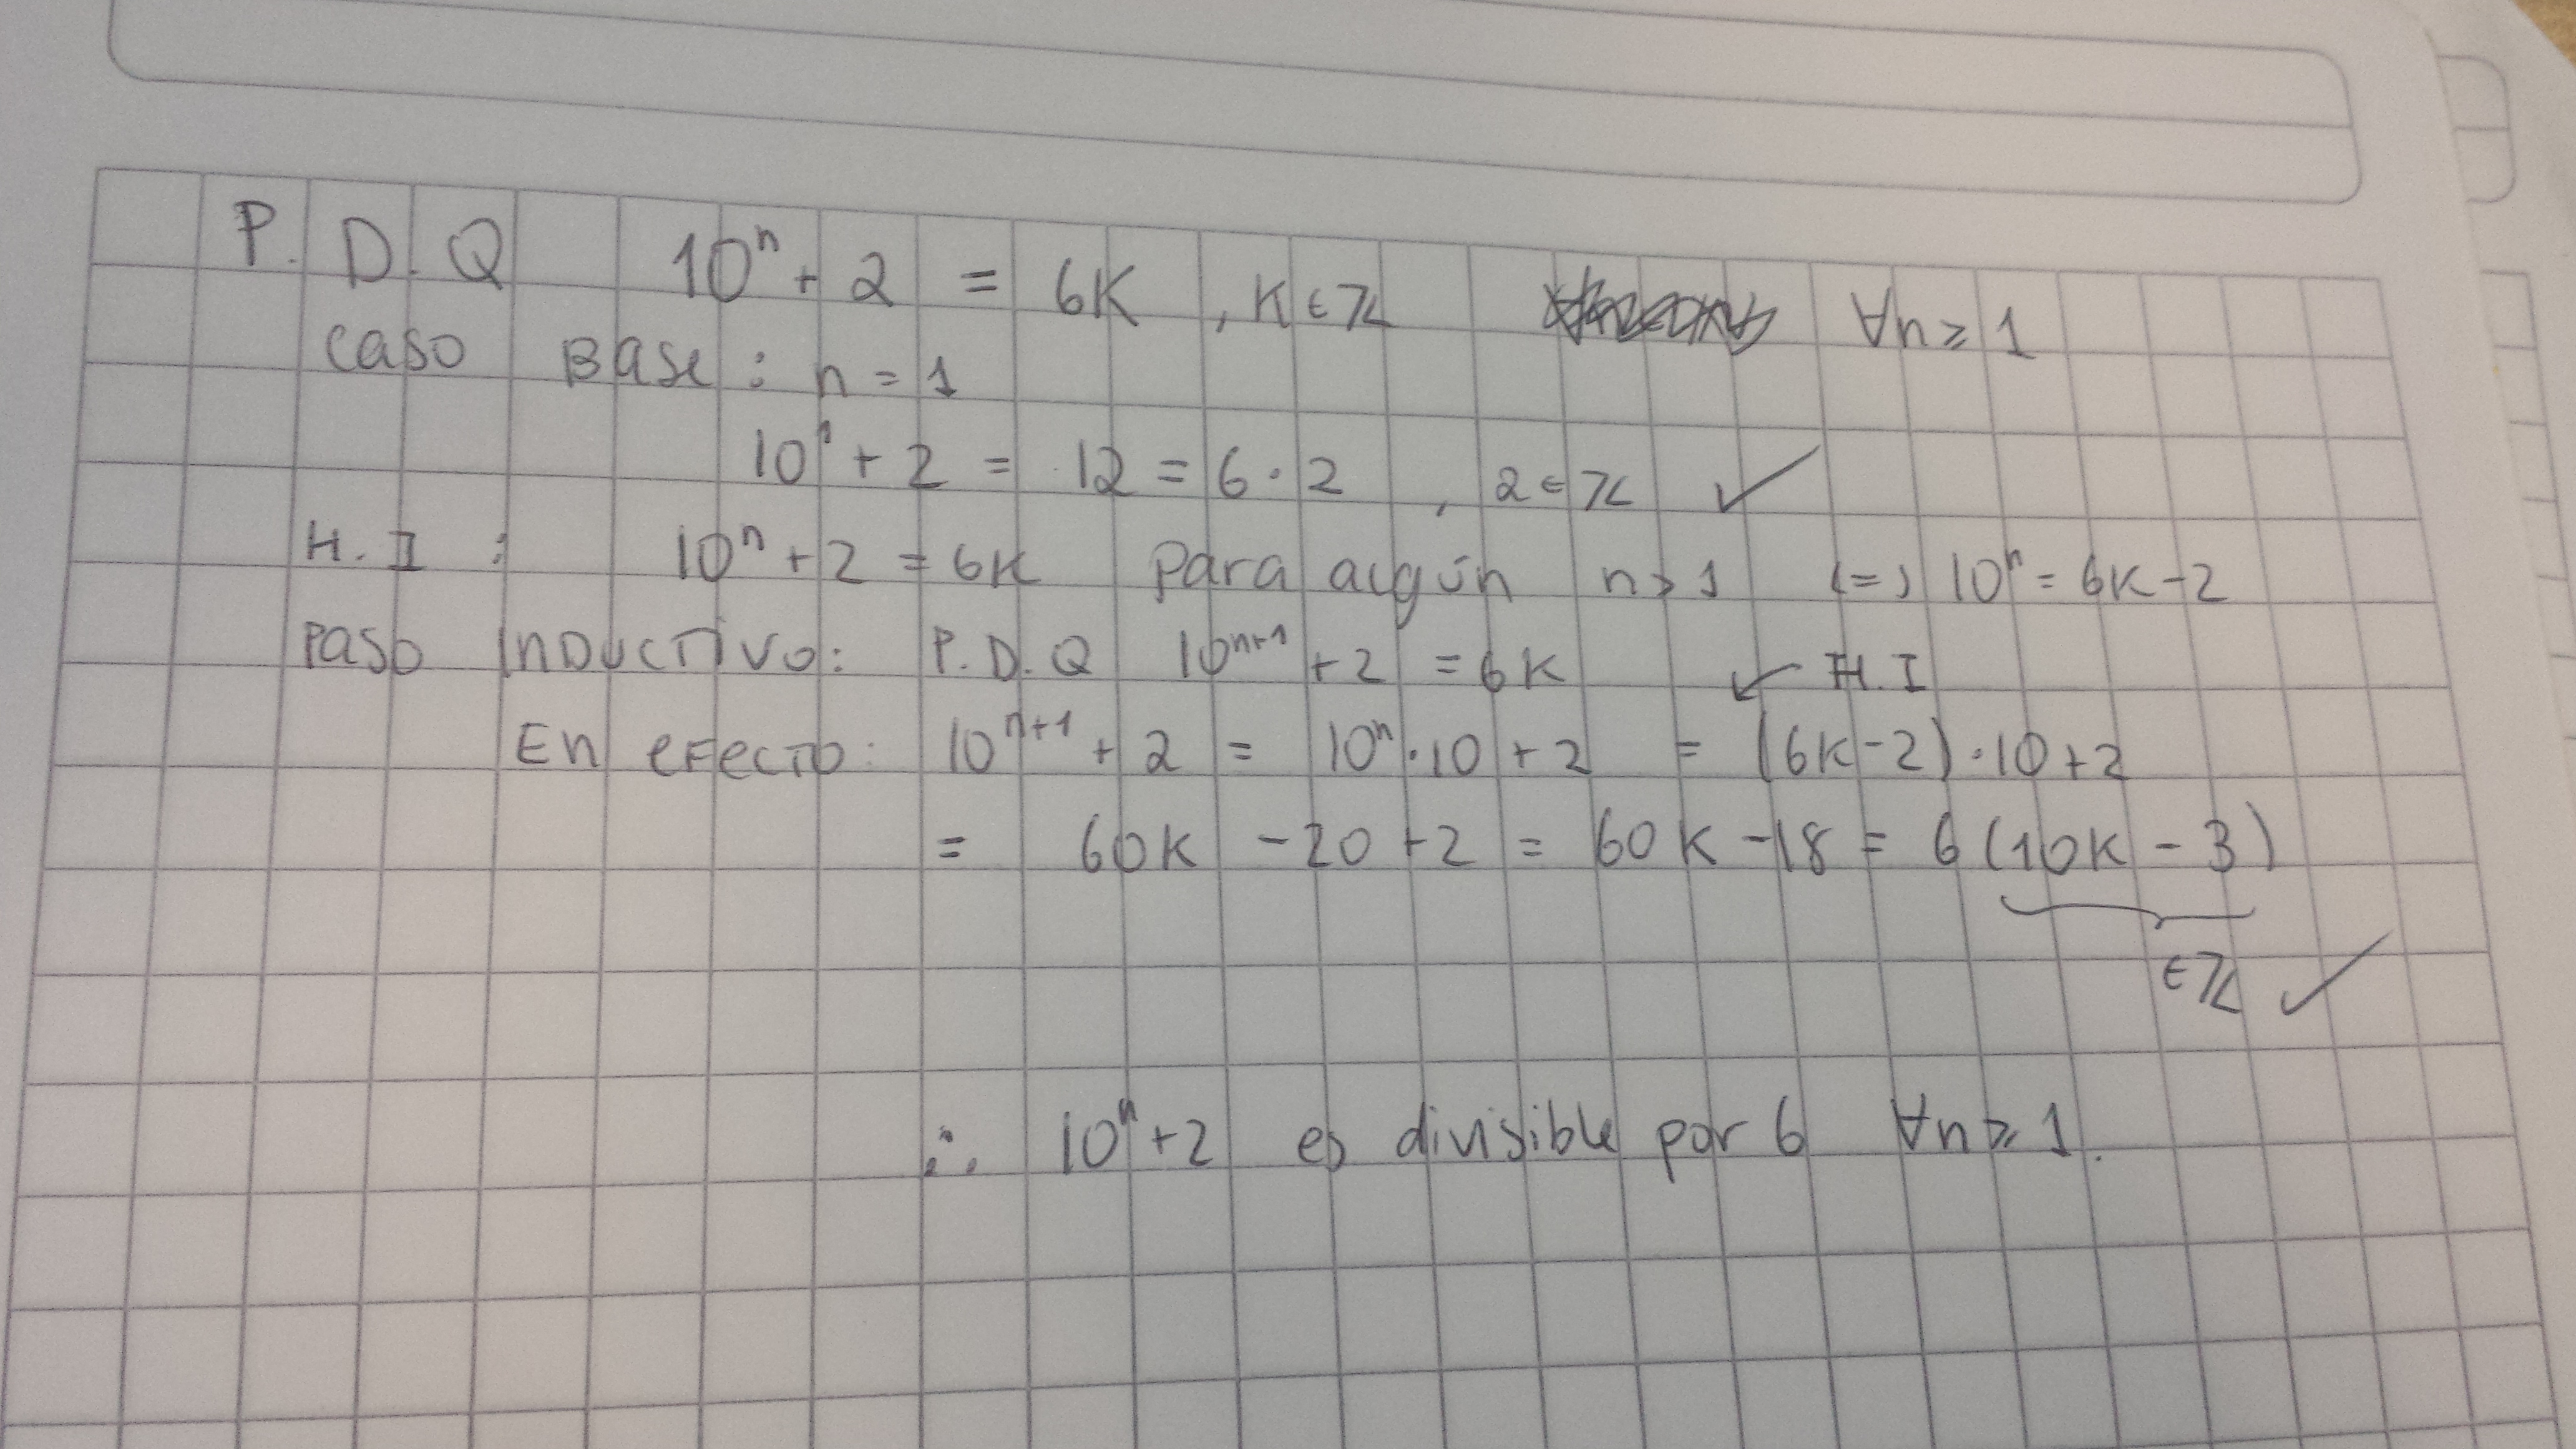 P.D.Q 10ⁿ + 2 = 6K , K ∈ ℤ ∀n ≥ 1
Caso Base : n = 1
10¹ + 2 = 12 = 6 · 2 , 2 ∈ ℤ ✓
H.I : 10ⁿ + 2 = 6K para algún n > 1 (=) 10ⁿ = 6K - 2
Paso Inductivo: P.D.Q 10ⁿ⁺¹ + 2 = 6K ↙ H.I
En efecto: 10ⁿ⁺¹ + 2 = 10ⁿ · 10 + 2 = (6K - 2) · 10 + 2
= 60K - 20 + 2 = 60K - 18 = 6 (10K - 3)
∈ ℤ ✓
∴ 10ⁿ + 2 es divisible por 6 ∀n ≥ 1.